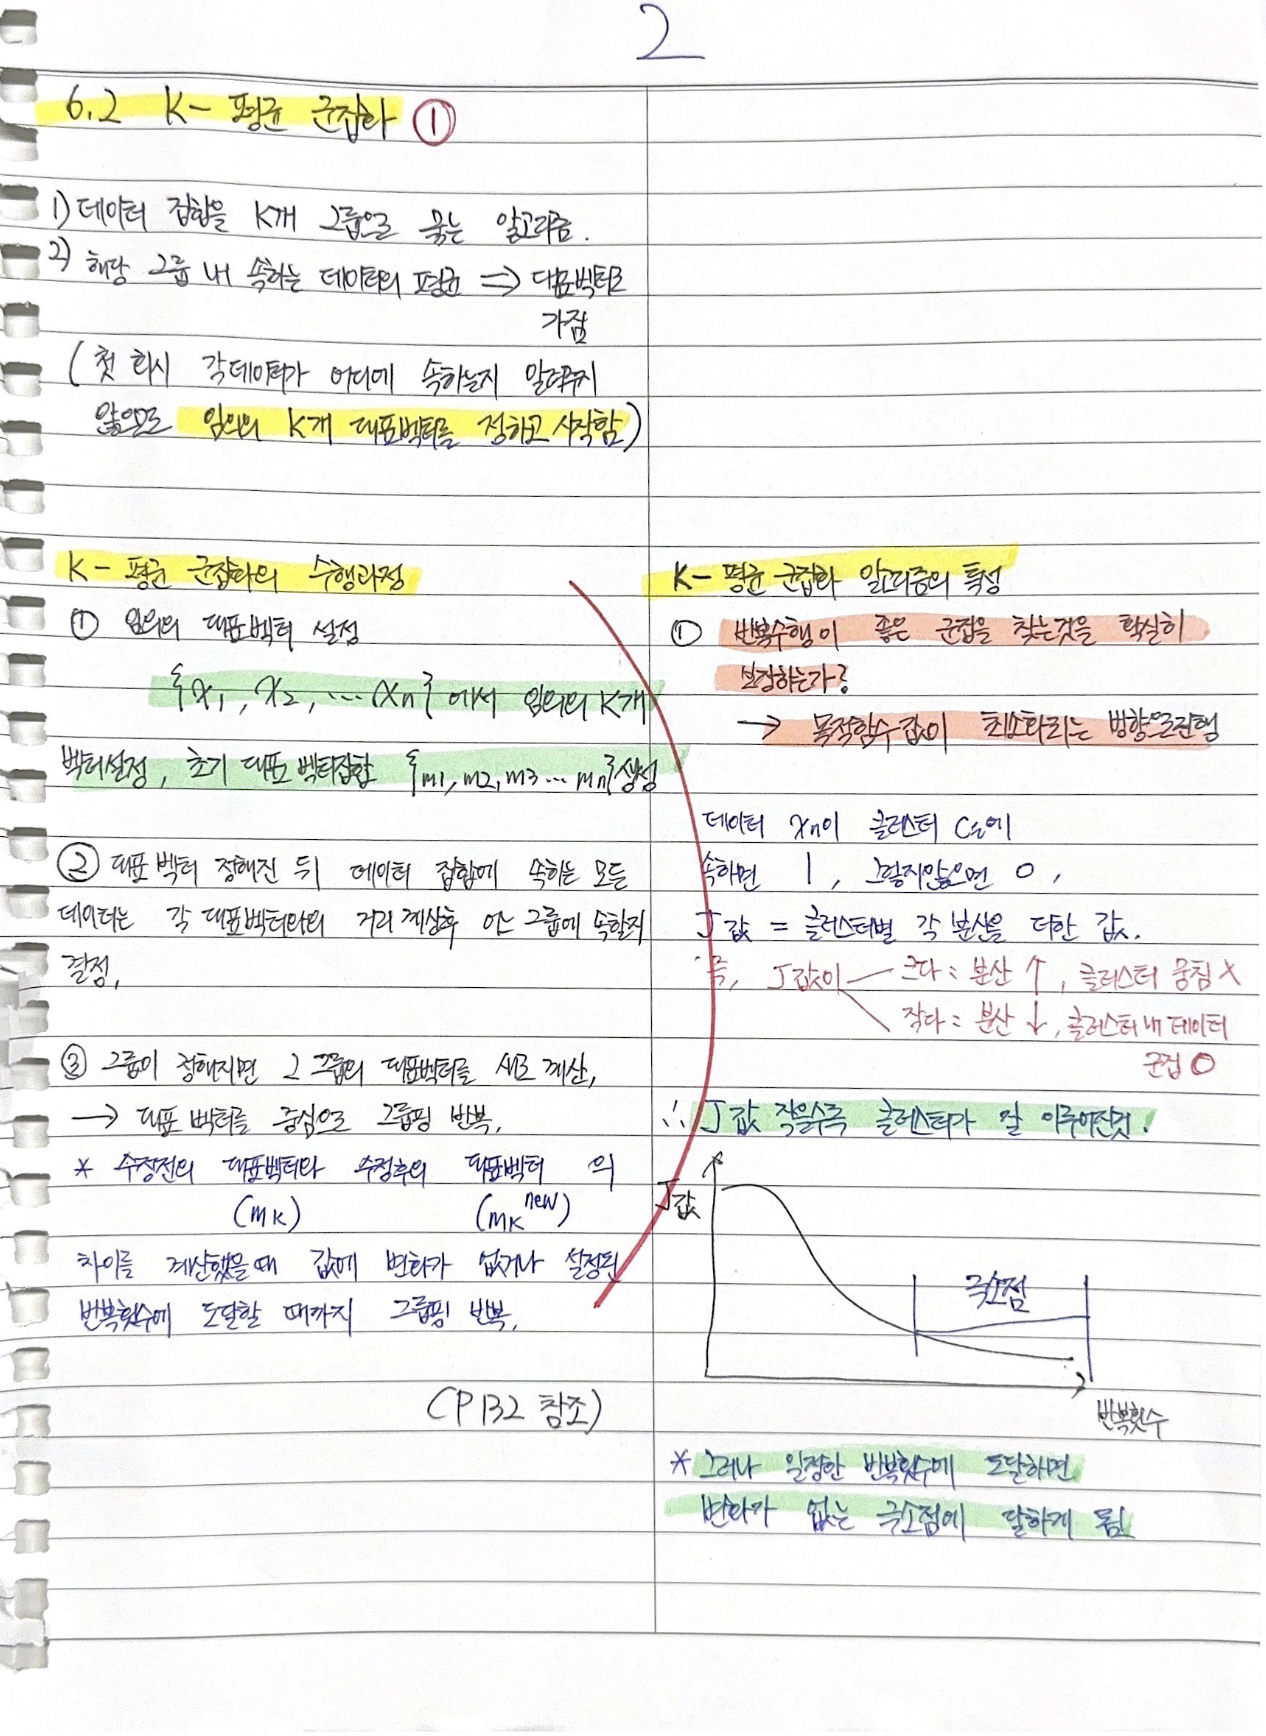 2
6.2 K- 평균 군집화 ①
1) 데이터 집합을 K개 그룹으로 묶는 알고리즘.
2) 해당 그룹 내 속하는 데이터의 평균 ⇒ 대표벡터로
가짐
(첫 회시 각데이터가 어디에 속하는지 알려주지
않으므로 임의의 K개 대표벡터를 정하고 시작함)
K- 평균 군집화의 수행과정
① 임의의 대표벡터 설정
{x1, x2, ... xn}에서 임의의 K개
벡터설정, 초기 대표 벡터집합 {m1, m2, m3... mn}생성
② 대표 벡터 정해진 뒤 데이터 집합에 속하는 모든
데이터는 각 대표벡터와의 거리 계산후 어느 그룹에 속할지
결정.
③ 그룹이 정해지면 그 그룹의 대표벡터를 새로 계산,
→ 대표 벡터를 중심으로 그룹핑 반복.
* 수정전의 대표벡터와 수정후의 대표벡터 의
(mK) (mK new)
차이를 계산했을때 값에 변화가 없거나 설정된
반복횟수에 도달할 때까지 그룹핑 반복.
(P132 참조)
K- 평균 군집화 알고리즘의 특성
① 반복수행이 좋은 군집을 찾는것을 확실히
보장하는가?
→ 목적함수값이 최소화되는 방향으로진행
데이터 xn이 클러스터 Ci에
속하면 1, 그렇지않으면 0,
J값 = 클러스터별 각 분산을 더한 값.
즉, J값이 크다: 분산↑, 클러스터 뭉침 X
작다: 분산↓, 클러스터 내 데이터
군집 O
∴ J값 작을수록 클러스터가 잘 이루어진것.
J값
극소점
반복횟수
* 그러나 일정한 반복횟수에 도달하면
변화가 없는 극소점에 달하게 됨